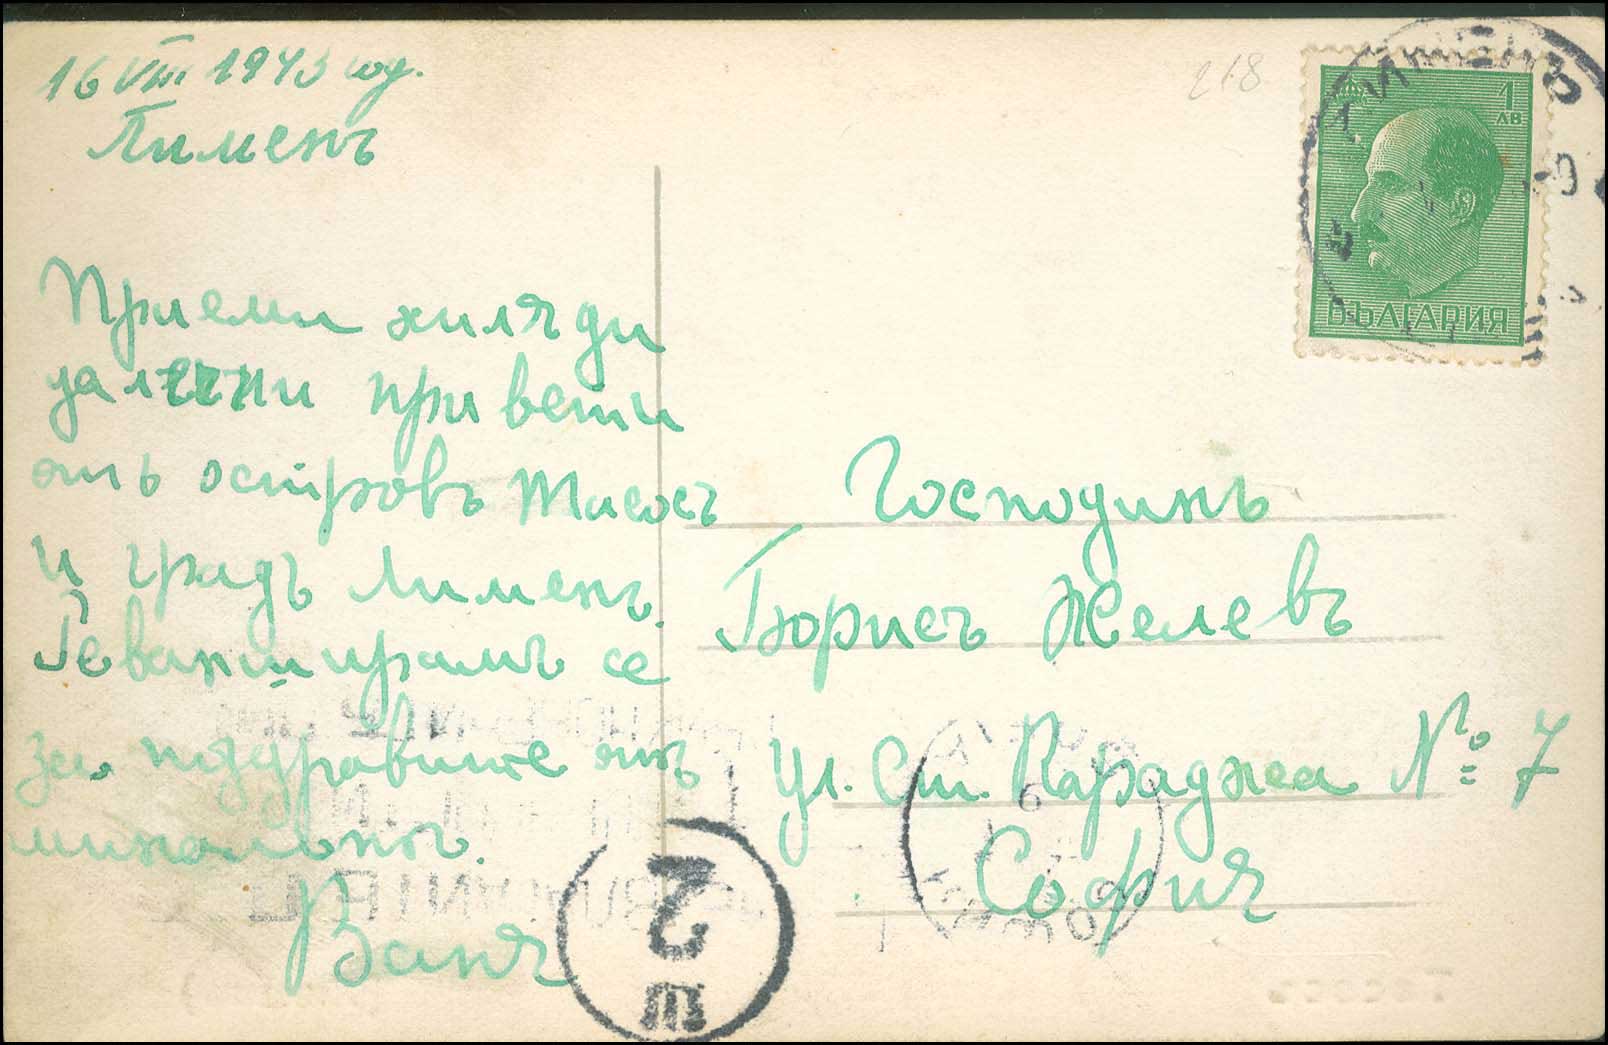 16 VIII 1943 год.
Лименъ
218
1
ЛВ
БЪЛГАРИЯ
Приеми хиляди
далечни привети
отъ островъ Тасосъ
и градъ Лименъ.
Реванширамъ се
за поздравите отъ
Ваня
Господинъ
Борисъ Желевъ
ул. Ст. Караджа № 7
София
2
III